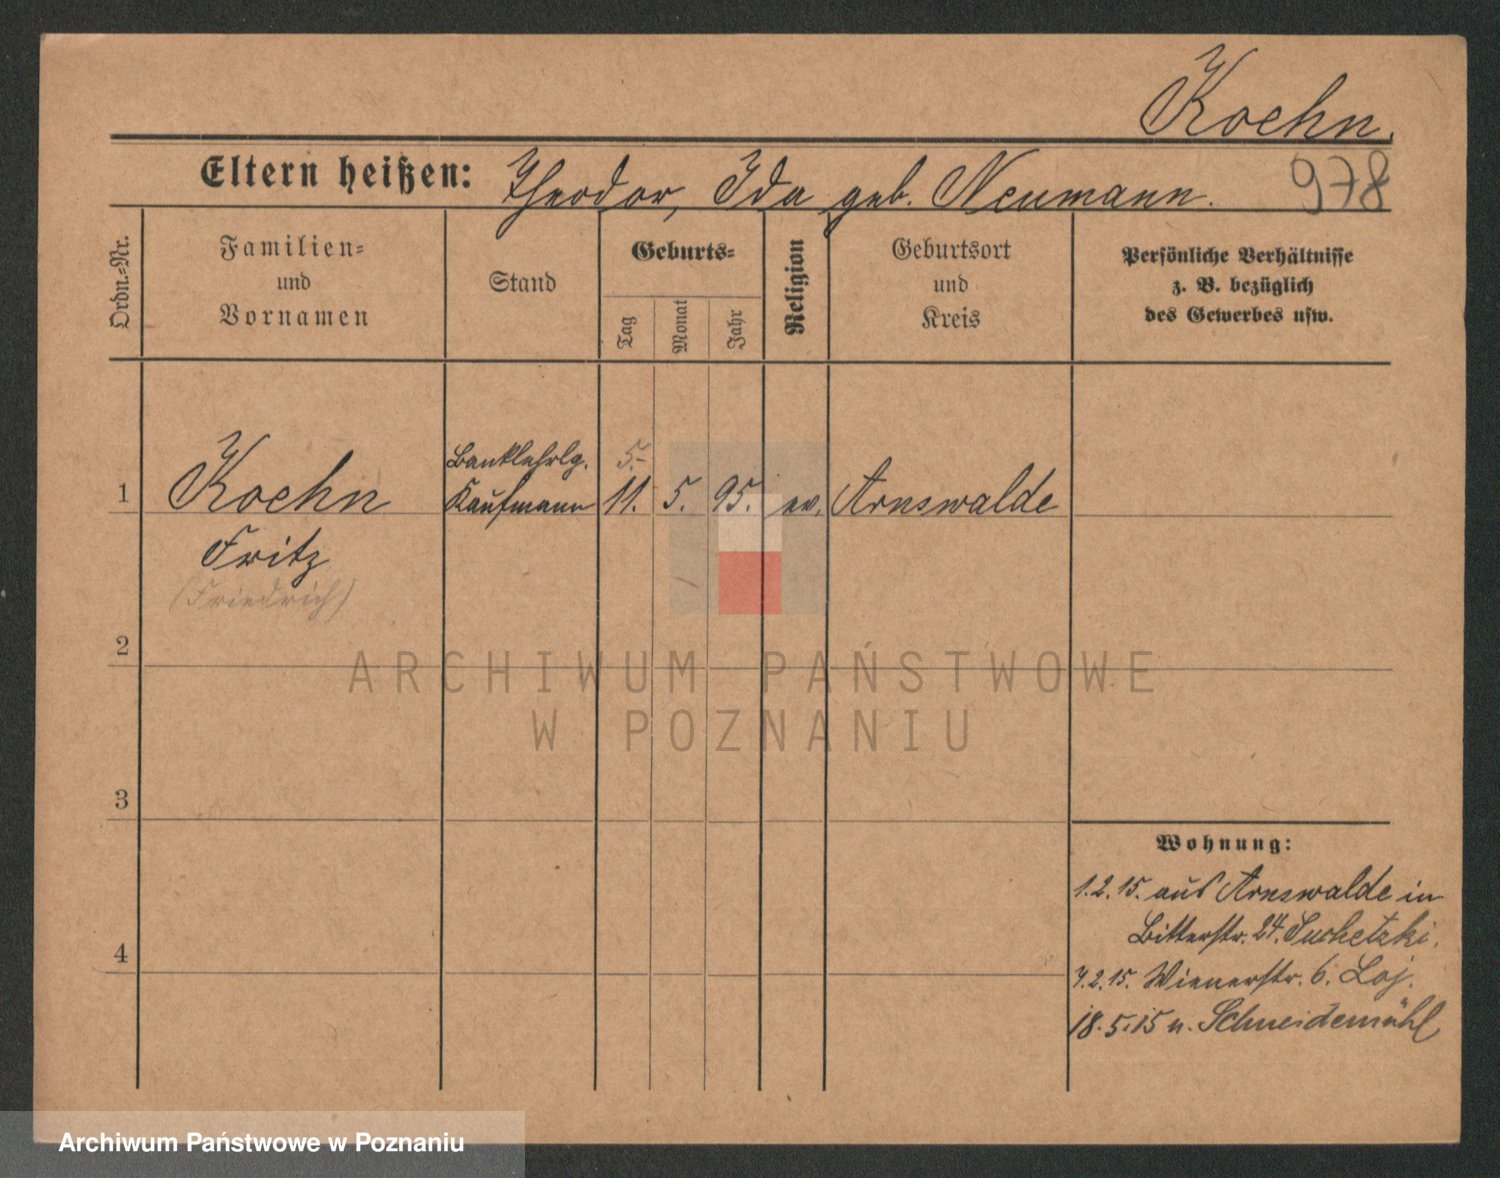 Koehn.
Eltern heißen: Theodor, Ida geb. Neumann.
978
Ordn.-Nr.
Familien-
und
Vornamen
Stand
Geburts-
Tag
Monat
Jahr
Religion
Geburtsort
und
Kreis
Persönliche Verhältnisse
z. B. bezüglich
des Gewerbes usw.
Banklehrlg. 5.
1 Koehn Kaufmann 11. 5. 95. ev. Arnswalde
Fritz
(Friedrich)
2
ARCHIWUM PAŃSTWOWE
W POZNANIU
3
Wohnung:
1.2.15. aus Arnswalde in
Bitterstr. 24. Suchetzki.
4
4.2.15. Wienerstr. 6. Loj.
18.5.15 n. Schneidemühl
Archiwum Państwowe w Poznaniu